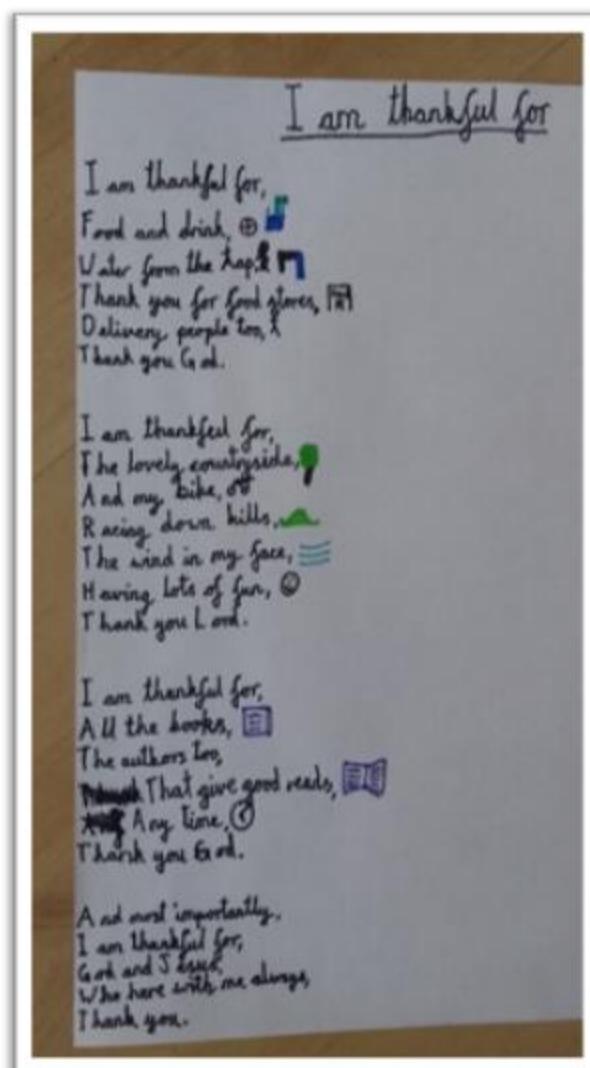 I am thankful for
I am thankful for,
Food and drink,
Water from the tap,
Thank you for food stores,
Delivery people too,
Thank you God.
I am thankful for,
The lovely countryside,
And my bike,
Racing down hills,
The wind in my face,
Having lots of fun,
Thank you Lord.
I am thankful for,
All the books,
The authors too,
That give good reads,
Any time,
Thank you God.
And most importantly,
I am thankful for,
God and Jesus,
Who here with me always,
Thank you.